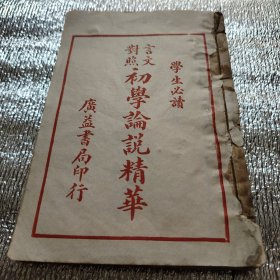 學生必讀
言文對照
初學論説精華
廣益書局印行